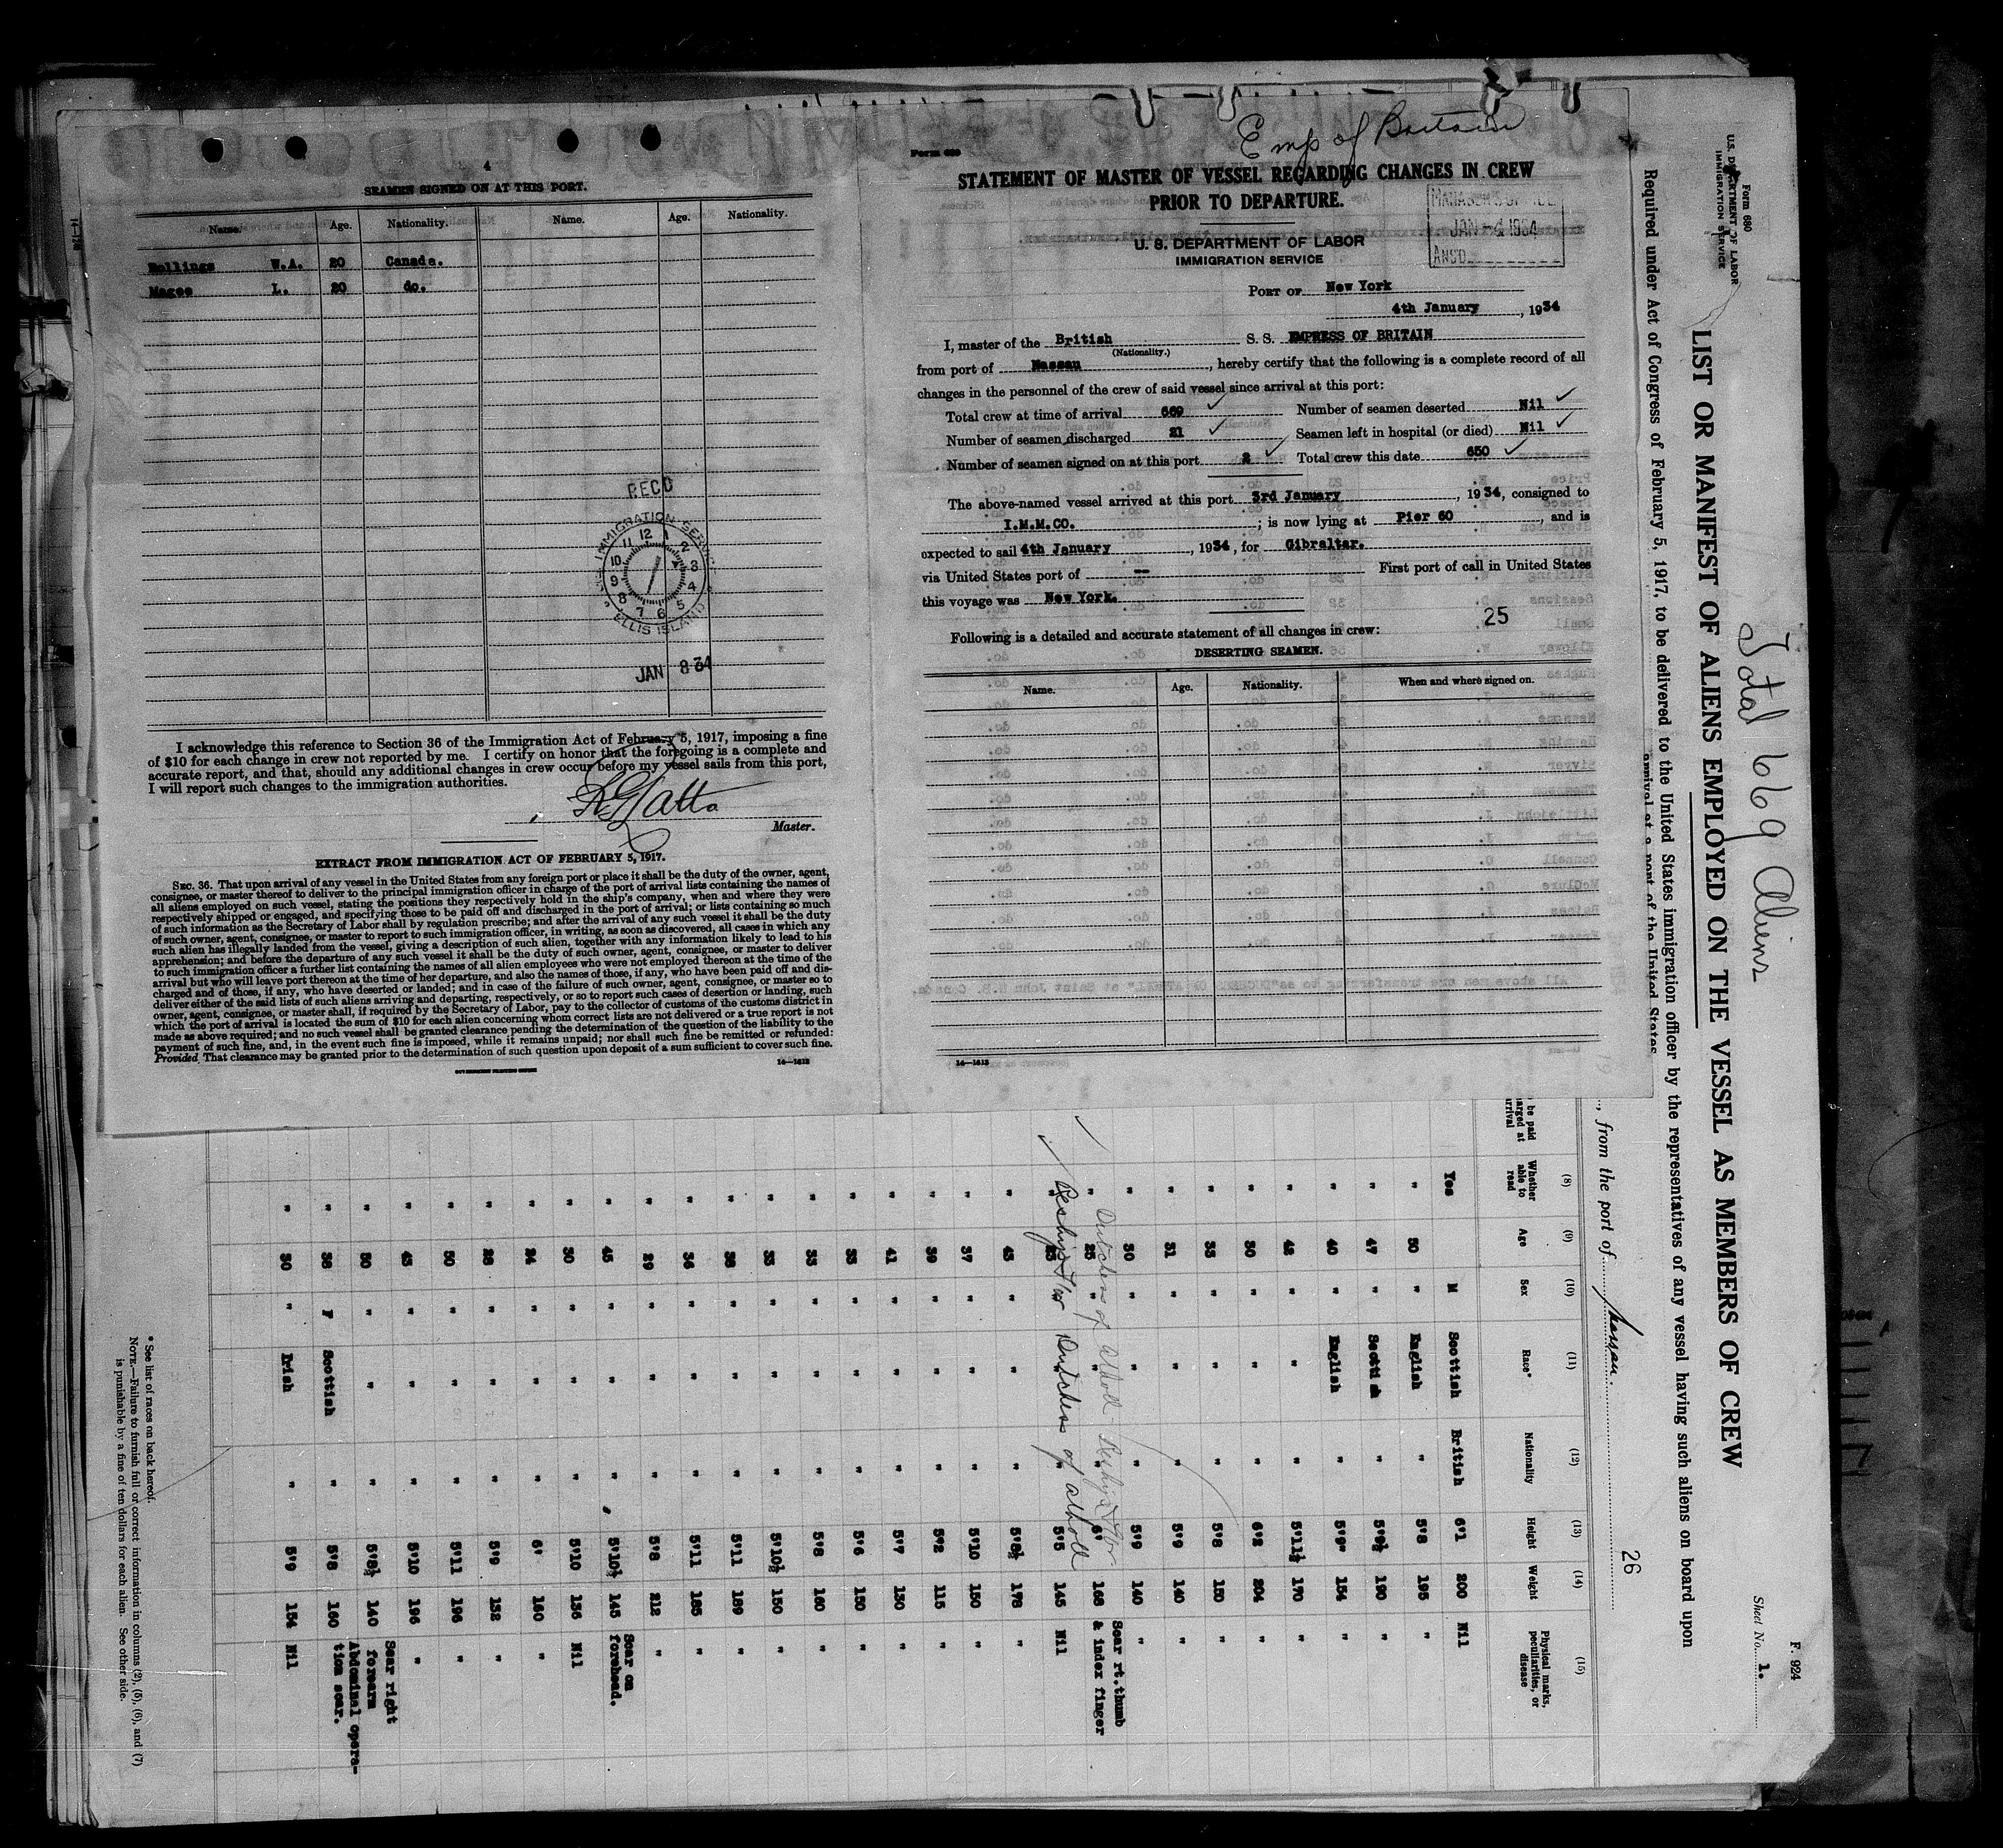 4
SEAMEN SIGNED ON AT THIS PORT.
Name. Age. Nationality. Name. Age. Nationality.
Rollings W.A. 20 Canada.
Magee L. 20 do.
REC'D
IMMIGRATION SERVICE
12 1 2 3 4 5 6 7 8 9 10 11
ELLIS ISLAND
JAN 8 34
I acknowledge this reference to Section 36 of the Immigration Act of February 5, 1917, imposing a fine
of $10 for each change in crew not reported by me. I certify on honor that the foregoing is a complete and
accurate report, and that, should any additional changes in crew occur before my vessel sails from this port,
I will report such changes to the immigration authorities.
Master.
EXTRACT FROM IMMIGRATION ACT OF FEBRUARY 5, 1917.
SEC. 36. That upon arrival of any vessel in the United States from any foreign port or place it shall be the duty of the owner, agent,
consignee, or master thereof to deliver to the principal immigration officer in charge of the port of arrival lists containing the names of
all aliens employed on such vessel, stating the positions they respectively hold in the ship's company, when and where they were
respectively shipped or engaged, and specifying those to be paid off and discharged in the port of arrival; or lists containing so much
of such information as the Secretary of Labor shall by regulation prescribe; and after the arrival of any such vessel it shall be the duty
of such owner, agent, consignee, or master to report to such immigration officer, in writing, as soon as discovered, all cases in which any
such alien has illegally landed from the vessel, giving a description of such alien, together with any information likely to lead to his
apprehension; and before the departure of any such vessel it shall be the duty of such owner, agent, consignee, or master to deliver
to such immigration officer a further list containing the names of all alien employees who were not employed thereon at the time of the
arrival but who will leave port thereon at the time of her departure, and also the names of those, if any, who have been paid off and dis-
charged and of those, if any, who have deserted or landed; and in case of the failure of such owner, agent, consignee, or master so to
deliver either of the said lists of such aliens arriving and departing, respectively, or so to report such cases of desertion or landing, such
owner, agent, consignee, or master shall, if required by the Secretary of Labor, pay to the collector of customs of the customs district in
which the port of arrival is located the sum of $10 for each alien concerning whom correct lists are not delivered or a true report is not
made as above required; and no such vessel shall be granted clearance pending the determination of the question of the liability to the
payment of such fine, and, in the event such fine is imposed, while it remains unpaid; nor shall such fine be remitted or refunded:
Provided, That clearance may be granted prior to the determination of such question upon deposit of a sum sufficient to cover such fine.
GOVERNMENT PRINTING OFFICE 14—1613
Emp of Britain
Form 689
STATEMENT OF MASTER OF VESSEL REGARDING CHANGES IN CREW
PRIOR TO DEPARTURE.
MANAGER'S OFFICE
JAN 4 1934
ANS'D
U. S. DEPARTMENT OF LABOR
IMMIGRATION SERVICE
PORT OF New York
4th January, 1934
I, master of the British S. S. EMPRESS OF BRITAIN
(Nationality.)
from port of Nassau, hereby certify that the following is a complete record of all
changes in the personnel of the crew of said vessel since arrival at this port:
Total crew at time of arrival 669 Number of seamen deserted Nil
Number of seamen discharged 21 Seamen left in hospital (or died) Nil
Number of seamen signed on at this port 2 Total crew this date 650
The above-named vessel arrived at this port 3rd January, 1934, consigned to
I.M.M.CO.; is now lying at Pier 60, and is
expected to sail 4th January, 1934, for Gibraltar.
via United States port of — First port of call in United States
this voyage was New York.
25
Following is a detailed and accurate statement of all changes in crew:
DESERTING SEAMEN.
Name. Age. Nationality. When and where signed on.
14—1613
Form 680
U.S. DEPARTMENT OF LABOR
IMMIGRATION SERVICE
F. 924
Sheet No. 1.
Total 669 Aliens
LIST OR MANIFEST OF ALIENS EMPLOYED ON THE VESSEL AS MEMBERS OF CREW
Required under Act of Congress of February 5, 1917, to be delivered to the United States immigration officer by the representatives of any vessel having such aliens on board upon
arrival at a port of the United States
, from the port of Nassau.
26
(8) (9) (10) (11) (12) (13) (14) (15)
be paid
arged at
arrival
Whether able to read Age Sex Race* Nationality Height Weight Physical marks, peculiarities, or disease
Yes M Scottish British 6'1 200 Nil
" 50 " English " 5'8 195 "
" 47 " Scottish " 5'9½ 190 "
" 40 " English " 5'9" 154 "
" 42 " " " 5'11½ 170 "
" 30 " " " 6'2 204 "
" 33 " " " 5'8 150 "
" 31 " " " 5'9 140 "
" 30 " " " 5'9 140 "
Dutchess of Atholl
" 25 " " " 6' 168 Scar rt. thumb & index finger
Dutchess of Atholl
" 23 " " " 5'5 145 Nil
" 43 " " " 5'8½ 178 "
" 37 " " " 5'10 150 "
" 39 " " " 5'2 115 "
" 41 " " " 5'7 130 "
" 33 " " " 5'6 150 "
" 33 " " " 5'8 160 "
" 33 " " " 5'10½ 150 "
" 38 " " " 5'11 189 "
" 36 " " " 5'11 185 "
" 29 " " " 5'8 212 "
" 45 " " " 5'10½ 145 Scar on forehead.
" 30 " " " 5'10 136 Nil
" 24 " " " 6' 160 "
" 28 " " " 5'9 132 "
" 50 " " " 5'11 196 "
" 43 " " " 5'10 196 "
" 50 " " " 5'8½ 140 Scar right forearm
" 38 F Scottish " 5'8 160 Abdominal opera-tion scar.
" 30 " Irish " 5'9 154 Nil
* See list of races on back hereof.
NOTE.—Failure to furnish full or correct information in columns (2), (5), (6), and (7)
is punishable by a fine of ten dollars for each alien. See other side.